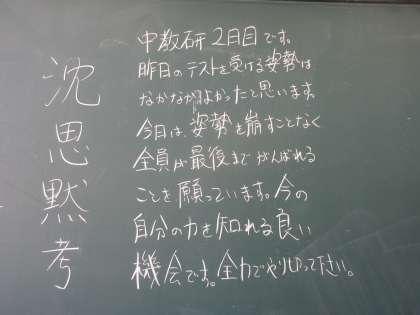 沈思黙考
中教研2日目です。
昨日のテストを受ける姿勢は
なかなかよかったと思います。
今日は、姿勢を崩すことなく
全員が最後までがんばれる
ことを願っています。今の
自分の力を知れる良い
機会です。全力でやり切って下さい。